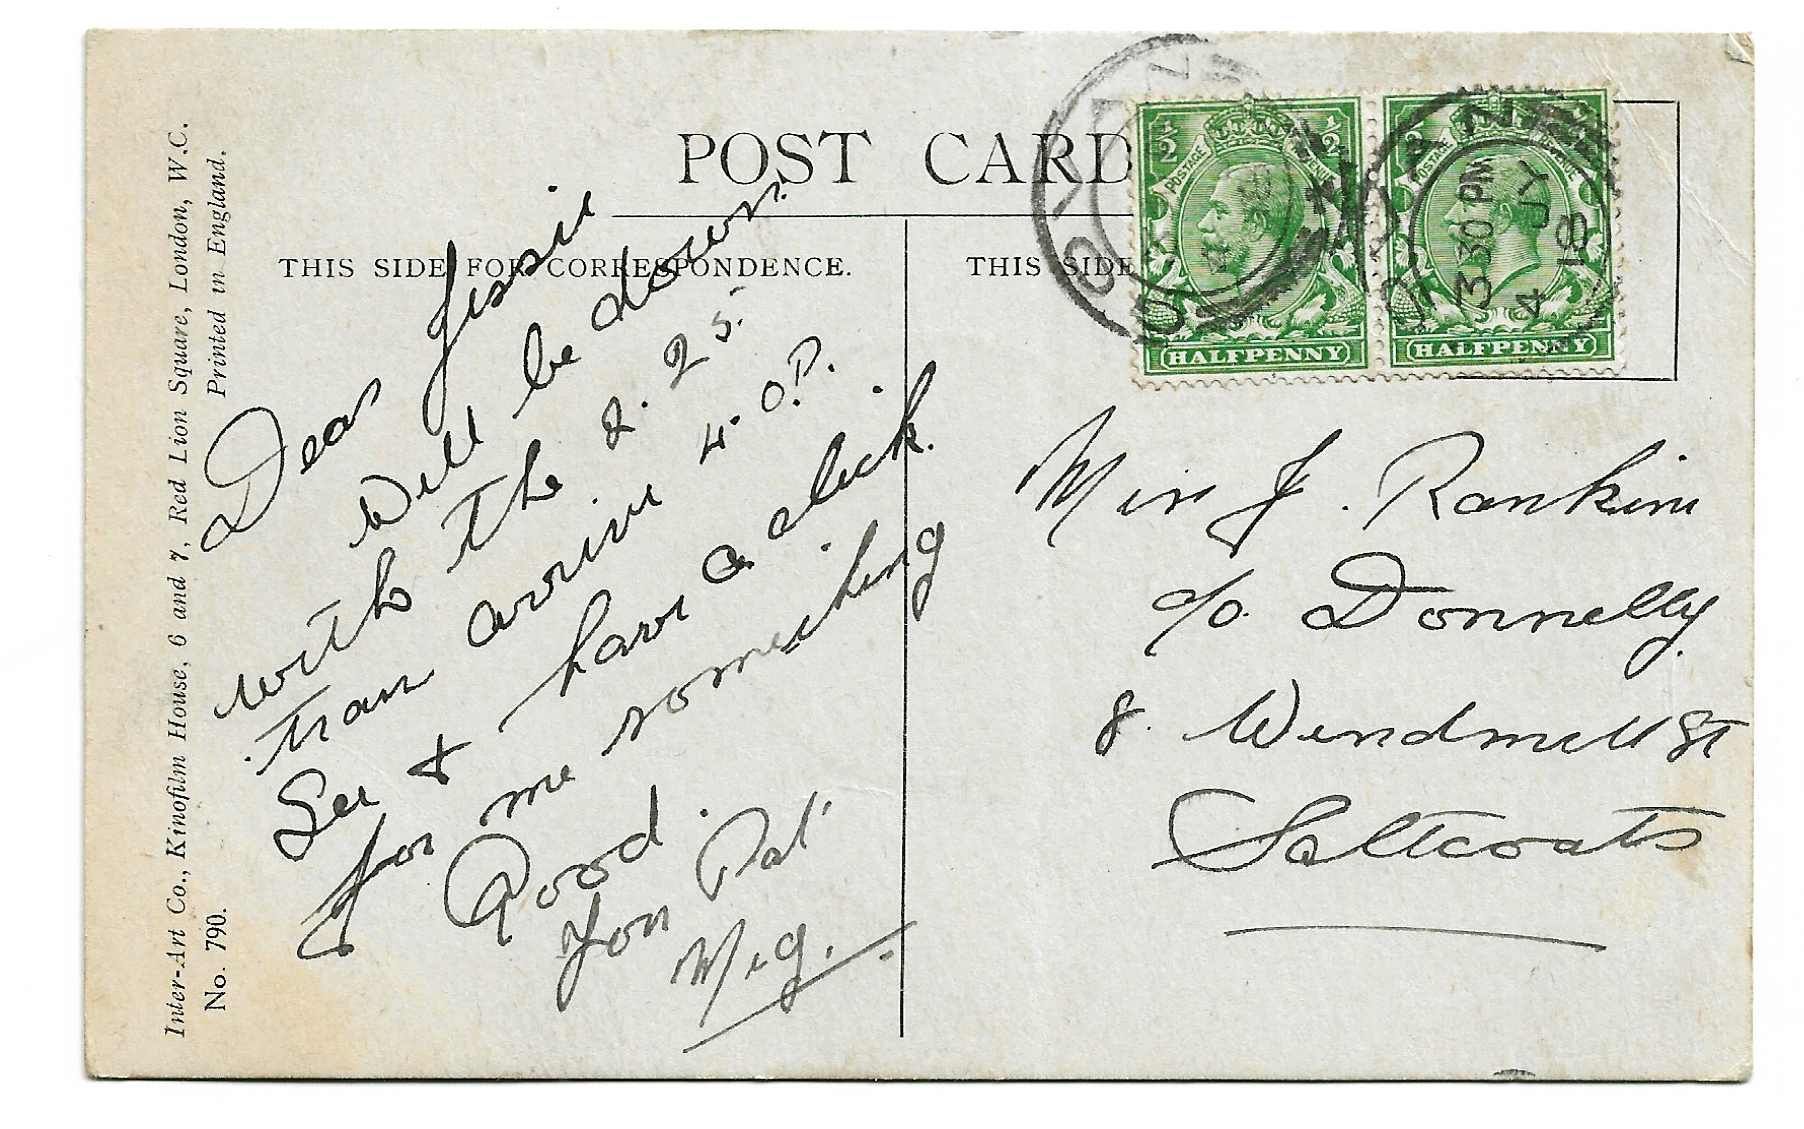 POST CARD
THIS SIDE FOR CORRESPONDENCE.
THIS SIDE
Inter-Art Co., Kinofilm House, 6 and 7, Red Lion Square, London, W.C.
No. 790.
Printed in England.
½ ½
POSTAGE
HALFPENNY
POSTAGE
HALFPENNY
GOVAN
3 30 PM
4 JY
18
Dear Jessie
Will be down
with the 2.25.
train arrive 4.0.P.
See & have a
for me something
Good.
Your Pal
Meg.
Miss J. Rankin
c/o. Donnelly
8. Windmill St
Saltcoats